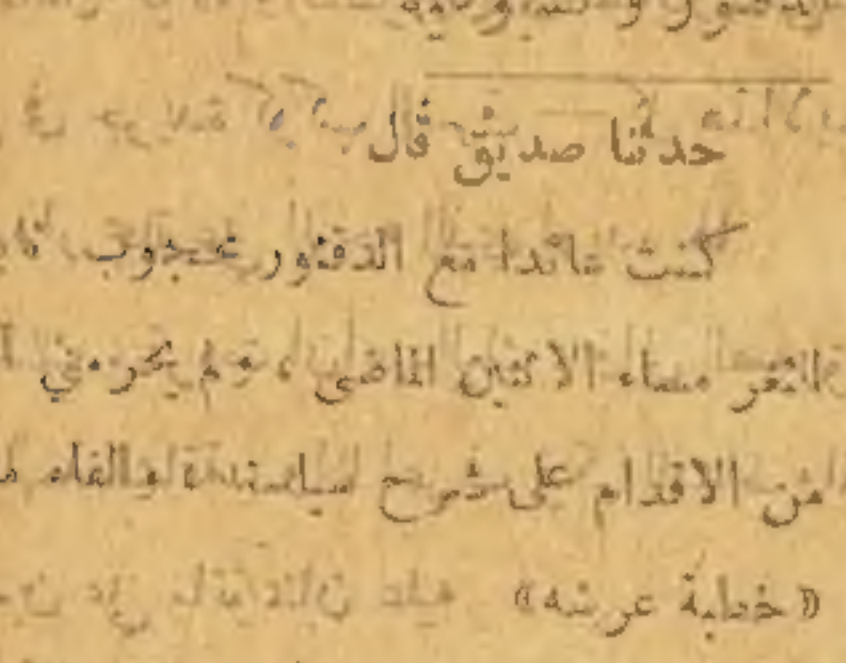 حدثنا صديق قال
كنت عائدا مع الدكتور محجوب
الثغر مساء الاثنين الماضى، ولم يحرمني
من الاقدام على شرح سياسته والقاء
«خطبة عرشه»